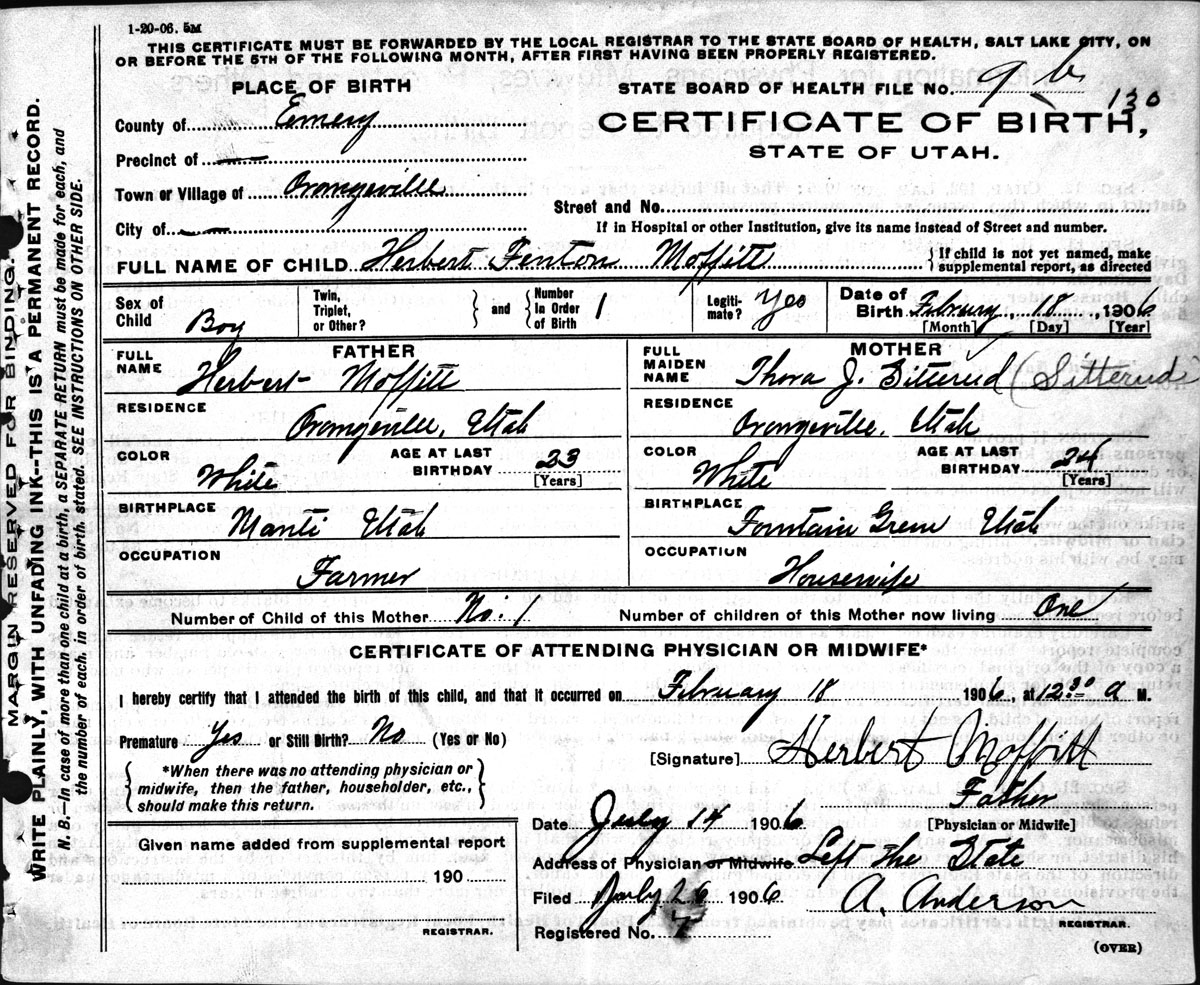 1-20-06. 5M
THIS CERTIFICATE MUST BE FORWARDED BY THE LOCAL REGISTRAR TO THE STATE BOARD OF HEALTH, SALT LAKE CITY, ON
OR BEFORE THE 5TH OF THE FOLLOWING MONTH, AFTER FIRST HAVING BEEN PROPERLY REGISTERED.
PLACE OF BIRTH
STATE BOARD OF HEALTH FILE No. 96 130
County of Emery
CERTIFICATE OF BIRTH,
STATE OF UTAH.
Precinct of
Town or Village of Orangeville
Street and No.
City of
If in Hospital or other Institution, give its name instead of Street and number.
FULL NAME OF CHILD Herbert Fenton Moffitt
{If child is not yet named, make
supplemental report, as directed
Sex of Child Boy
Twin, Triplet, or Other?
and
Number in Order of Birth 1
Legitimate? Yes
Date of Birth February 18, 1906
[Month] [Day] [Year]
FATHER
FULL NAME Herbert Moffitt
RESIDENCE Orangeville, Utah
COLOR White
AGE AT LAST BIRTHDAY 23 [Years]
BIRTHPLACE Manti Utah
OCCUPATION Farmer
MOTHER
FULL MAIDEN NAME Thora J. Bitterud (Sitterud
RESIDENCE Orangeville, Utah
COLOR White
AGE AT LAST BIRTHDAY 24 [Years]
BIRTHPLACE Fountain Green Utah
OCCUPATION Housewife
Number of Child of this Mother No. 1
Number of children of this Mother now living One
CERTIFICATE OF ATTENDING PHYSICIAN OR MIDWIFE*
I hereby certify that I attended the birth of this child, and that it occurred on February 18 1906, at 12 30 a M.
Premature Yes or Still Birth? No (Yes or No)
[Signature] Herbert Moffitt
{*When there was no attending physician or
midwife, then the father, householder, etc.,
should make this return.}
Father
[Physician or Midwife]
Date July 14 1906
Address of Physician or Midwife Left the State
Filed July 26 1906 A. Anderson
REGISTRAR.
Registered No. 7
Given name added from supplemental report
190
REGISTRAR.
(OVER)
MARGIN RESERVED FOR BINDING.
WRITE PLAINLY, WITH UNFADING INK--THIS IS A PERMANENT RECORD.
N. B.—In case of more than one child at a birth, a SEPARATE RETURN must be made for each, and
the number of each, in order of birth, stated. SEE INSTRUCTIONS ON OTHER SIDE.